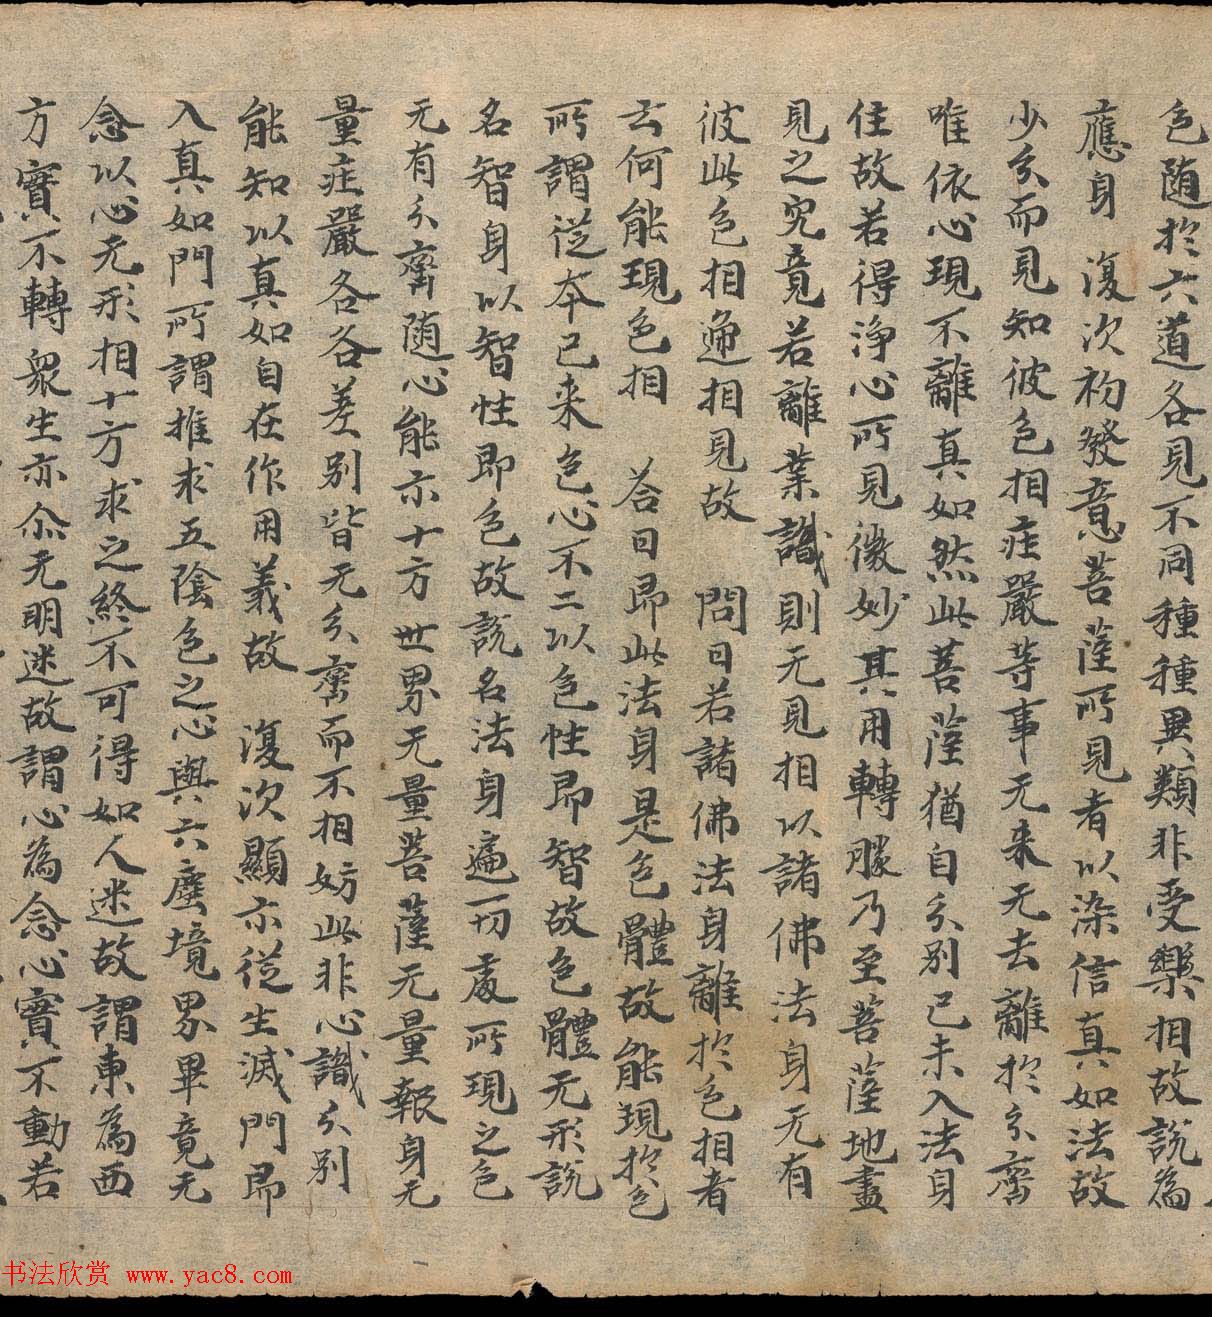 色随於六道各見不同種種異類非受樂相故說為
應身　復次初發意菩薩所見者以染信真如法故
少分而見知彼色相庄嚴等事无来无去離於分齊
唯依心現不離真如然此菩薩猶自分別已未入法身
住故若得淨心所見微妙其用轉勝乃至菩薩地盡
見之究竟若離業識則无見相以諸佛法身无有
彼此色相迊相見故　問曰若諸佛法身離於色相者
云何能現色相　荅曰即此法身是色體故能現於色
所謂従本已来色心不二以色性即智故色體无形說
名智身以智性即色故說名法身遍一切處所現之色
无有分齊随心能示十方世界无量菩薩无量報身无
量庄嚴各各差別皆无分齊而不相妨此非心識分別
能知以真如自在作用義故　復次顯示従生滅門即
入真如門所謂推求五陰色之心與六塵境界畢竟无
念以心无形相十方求之終不可得如人迷故謂東為西
方實不轉衆生亦尒无明迷故謂心為念心實不動若
书法欣赏 www.yac8.com